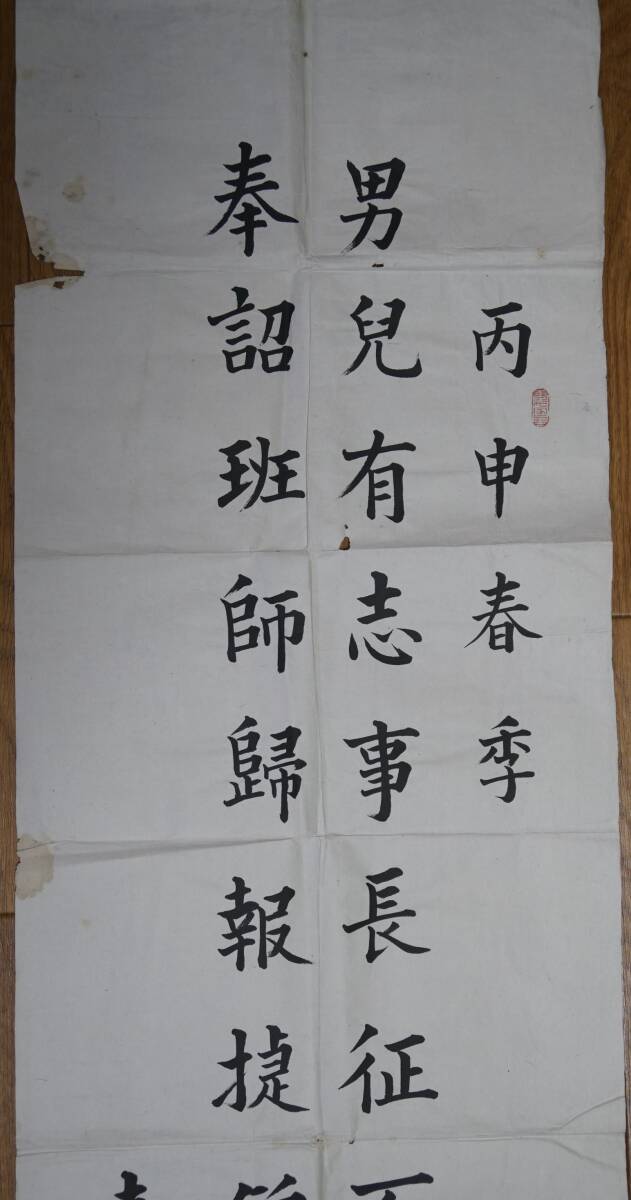 丙申春季
男兒有志事長征
奉詔班師歸報捷